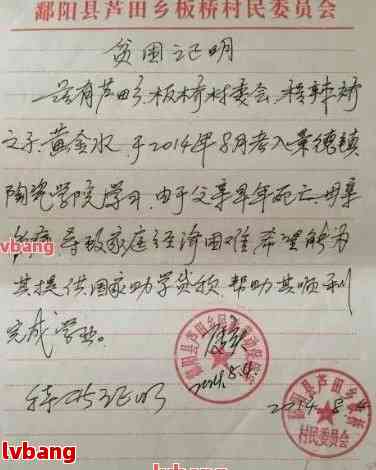 鄱阳县芦田乡板桥村民委员会
贫困证明
兹有芦田乡板桥村委会
之子黄金水,于2014年8月考入景德镇
陶瓷学院学习,由于父亲早年死亡,母亲
导致家庭经济困难,希望能为
其提供国家助学贷款,帮助其顺利
完成学业。
特此证明
2014.8.4
2014.8.4
村民委员会
lvbang
lvbang
lvbang